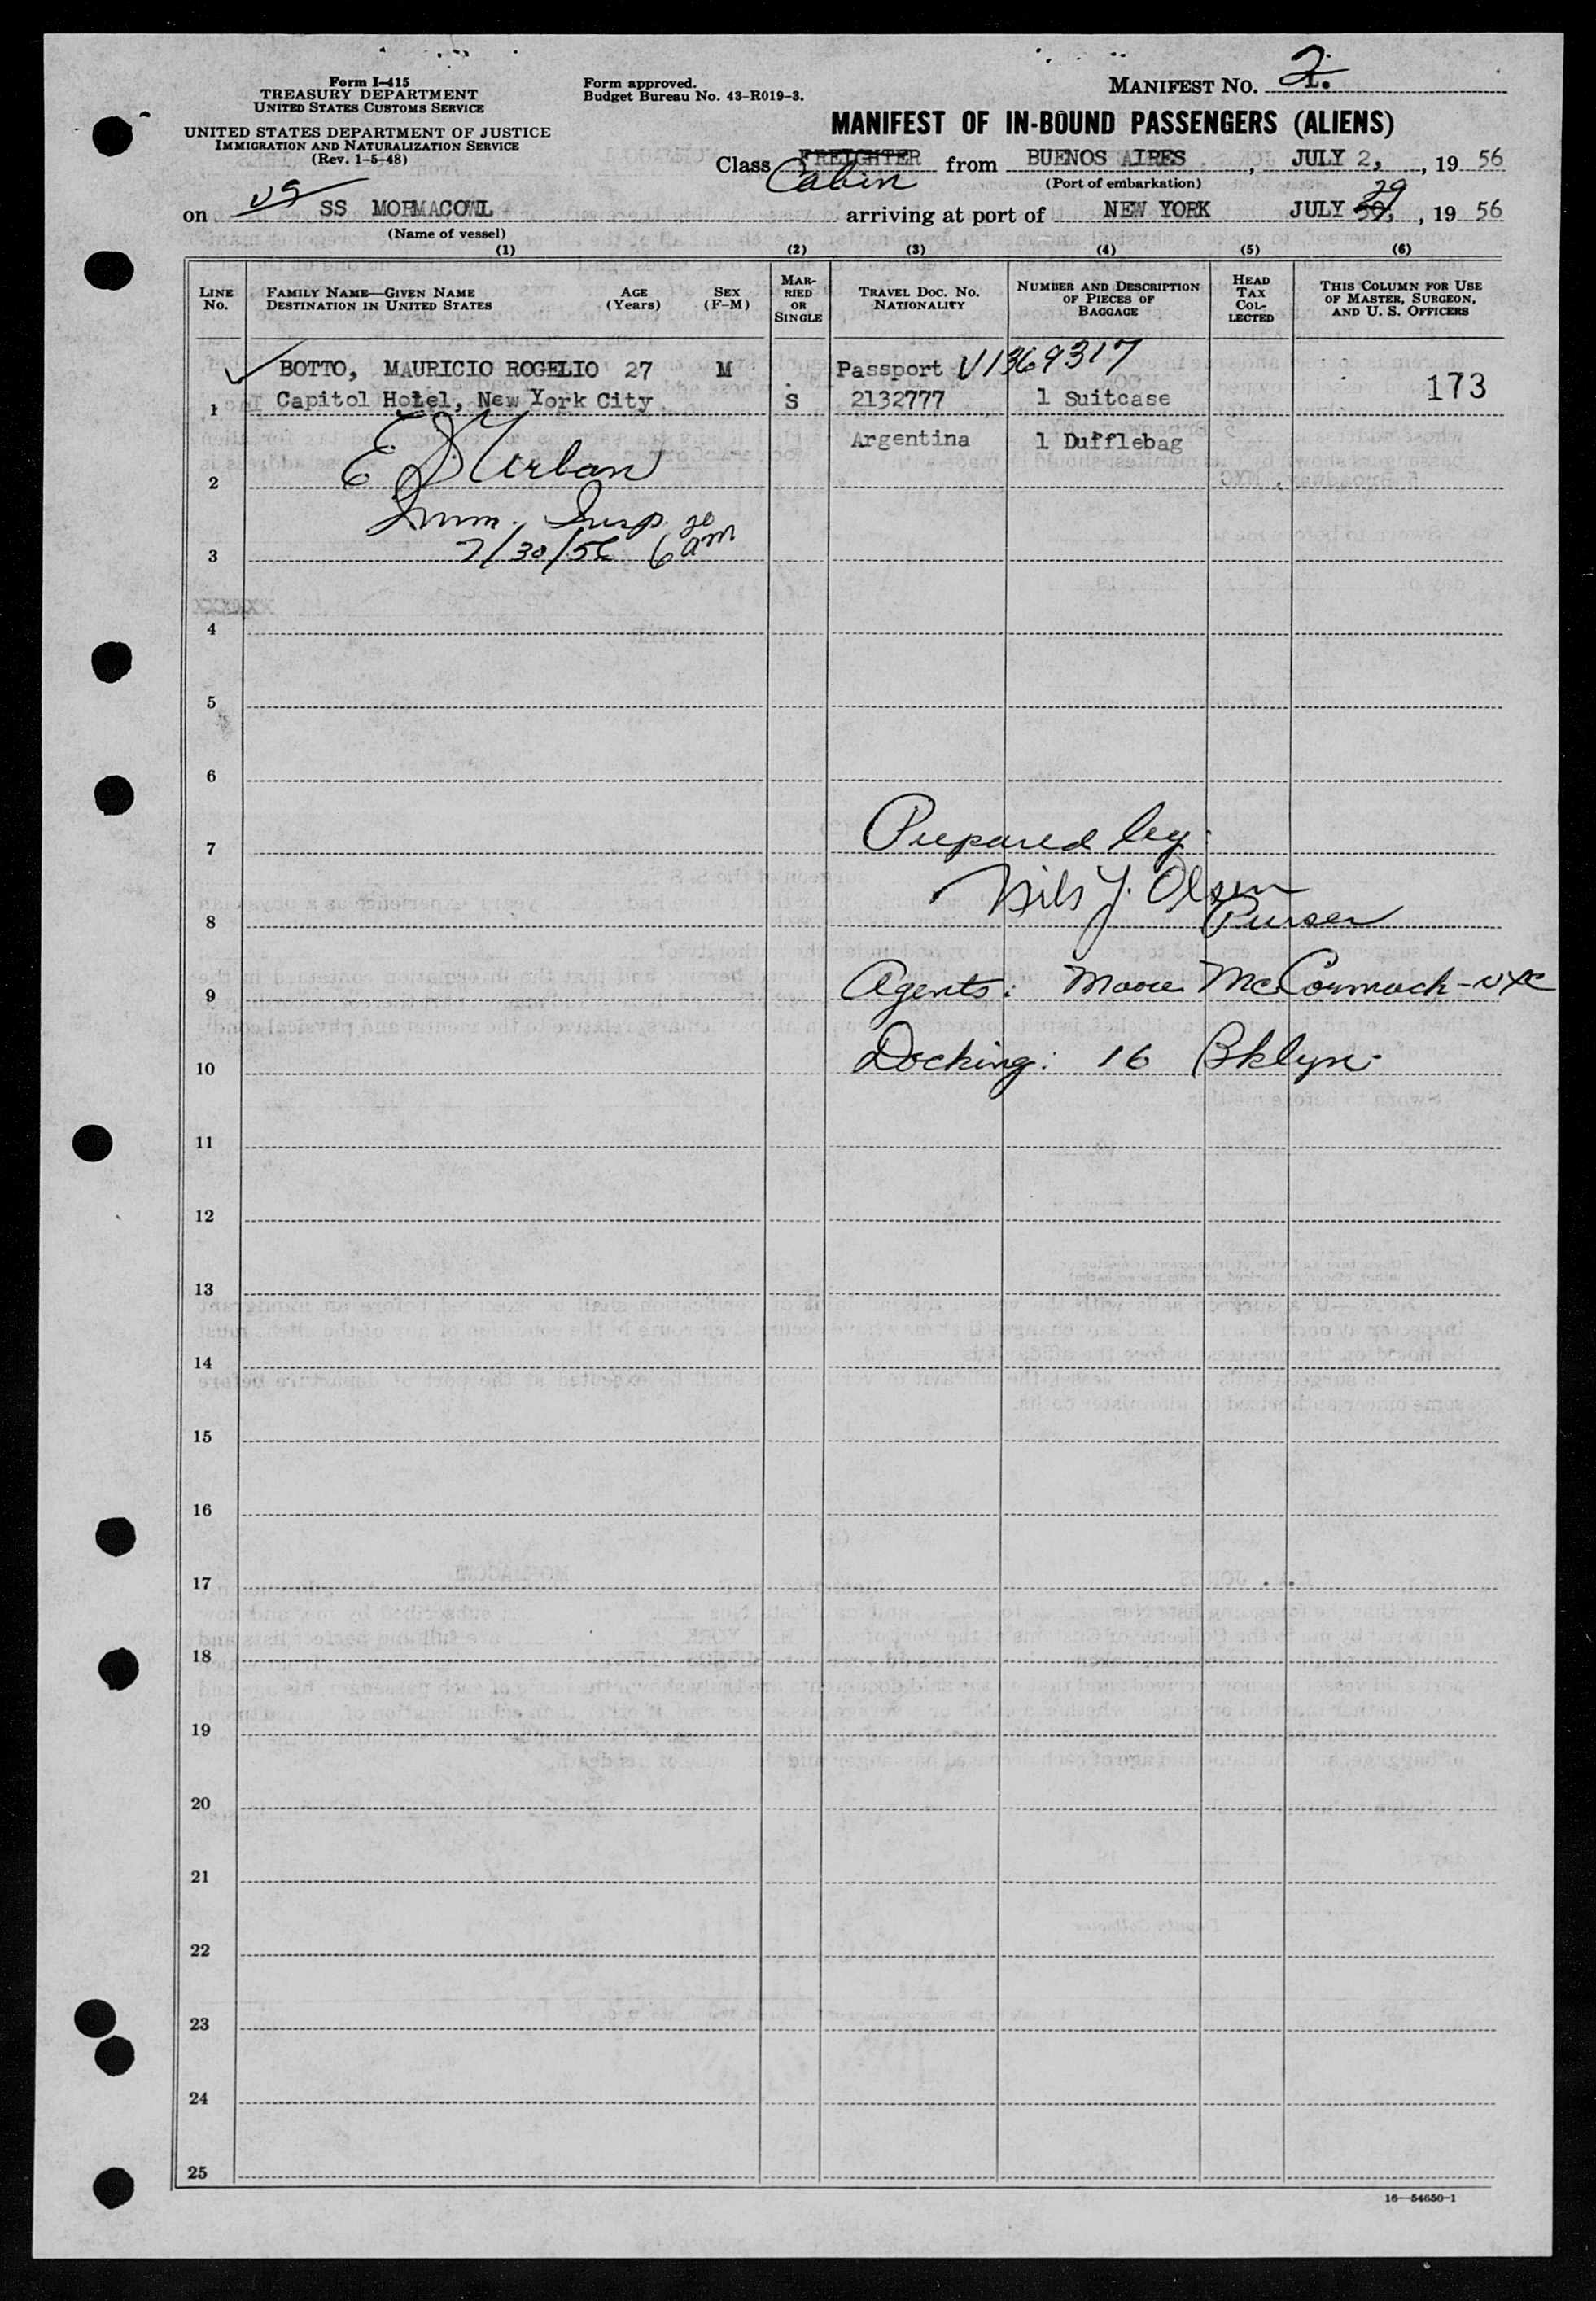 Form I-415
TREASURY DEPARTMENT
UNITED STATES CUSTOMS SERVICE
UNITED STATES DEPARTMENT OF JUSTICE
IMMIGRATION AND NATURALIZATION SERVICE
(Rev. 1-5-48)
Form approved.
Budget Bureau No. 43-R019-3.
MANIFEST NO. 2.
MANIFEST OF IN-BOUND PASSENGERS (ALIENS)
Class FREIGHTER Cabin from BUENOS AIRES, JULY 2, 19 56
(Port of embarkation)
on SS MORMACOWL arriving at port of NEW YORK JULY 29, 19 56
(Name of vessel)
(1) (2) (3) (4) (5) (6)
LINE NO.
FAMILY NAME—GIVEN NAME
DESTINATION IN UNITED STATES
AGE
(Years)
SEX
(F-M)
MARRIED OR SINGLE
TRAVEL DOC. NO.
NATIONALITY
NUMBER AND DESCRIPTION
OF PIECES OF
BAGGAGE
HEAD
TAX
COL-
LECTED
THIS COLUMN FOR USE
OF MASTER, SURGEON,
AND U. S. OFFICERS
BOTTO, MAURICIO ROGELIO 27 M Passport V1369317
1 Capitol Hotel, New York City S 2132777 1 Suitcase 173
Argentina 1 Dufflebag
2 E D Urban
Imm. Insp.
3 7/30/56 6 30 am
4
5
6
7 Prepared by:
Nils J. Olsen
8 Purser
9 Agents: Moore McCormack - NYC
10 Docking: 16 Bklyn.
11
12
13
14
15
16
17
18
19
20
21
22
23
24
25
16—54650-1